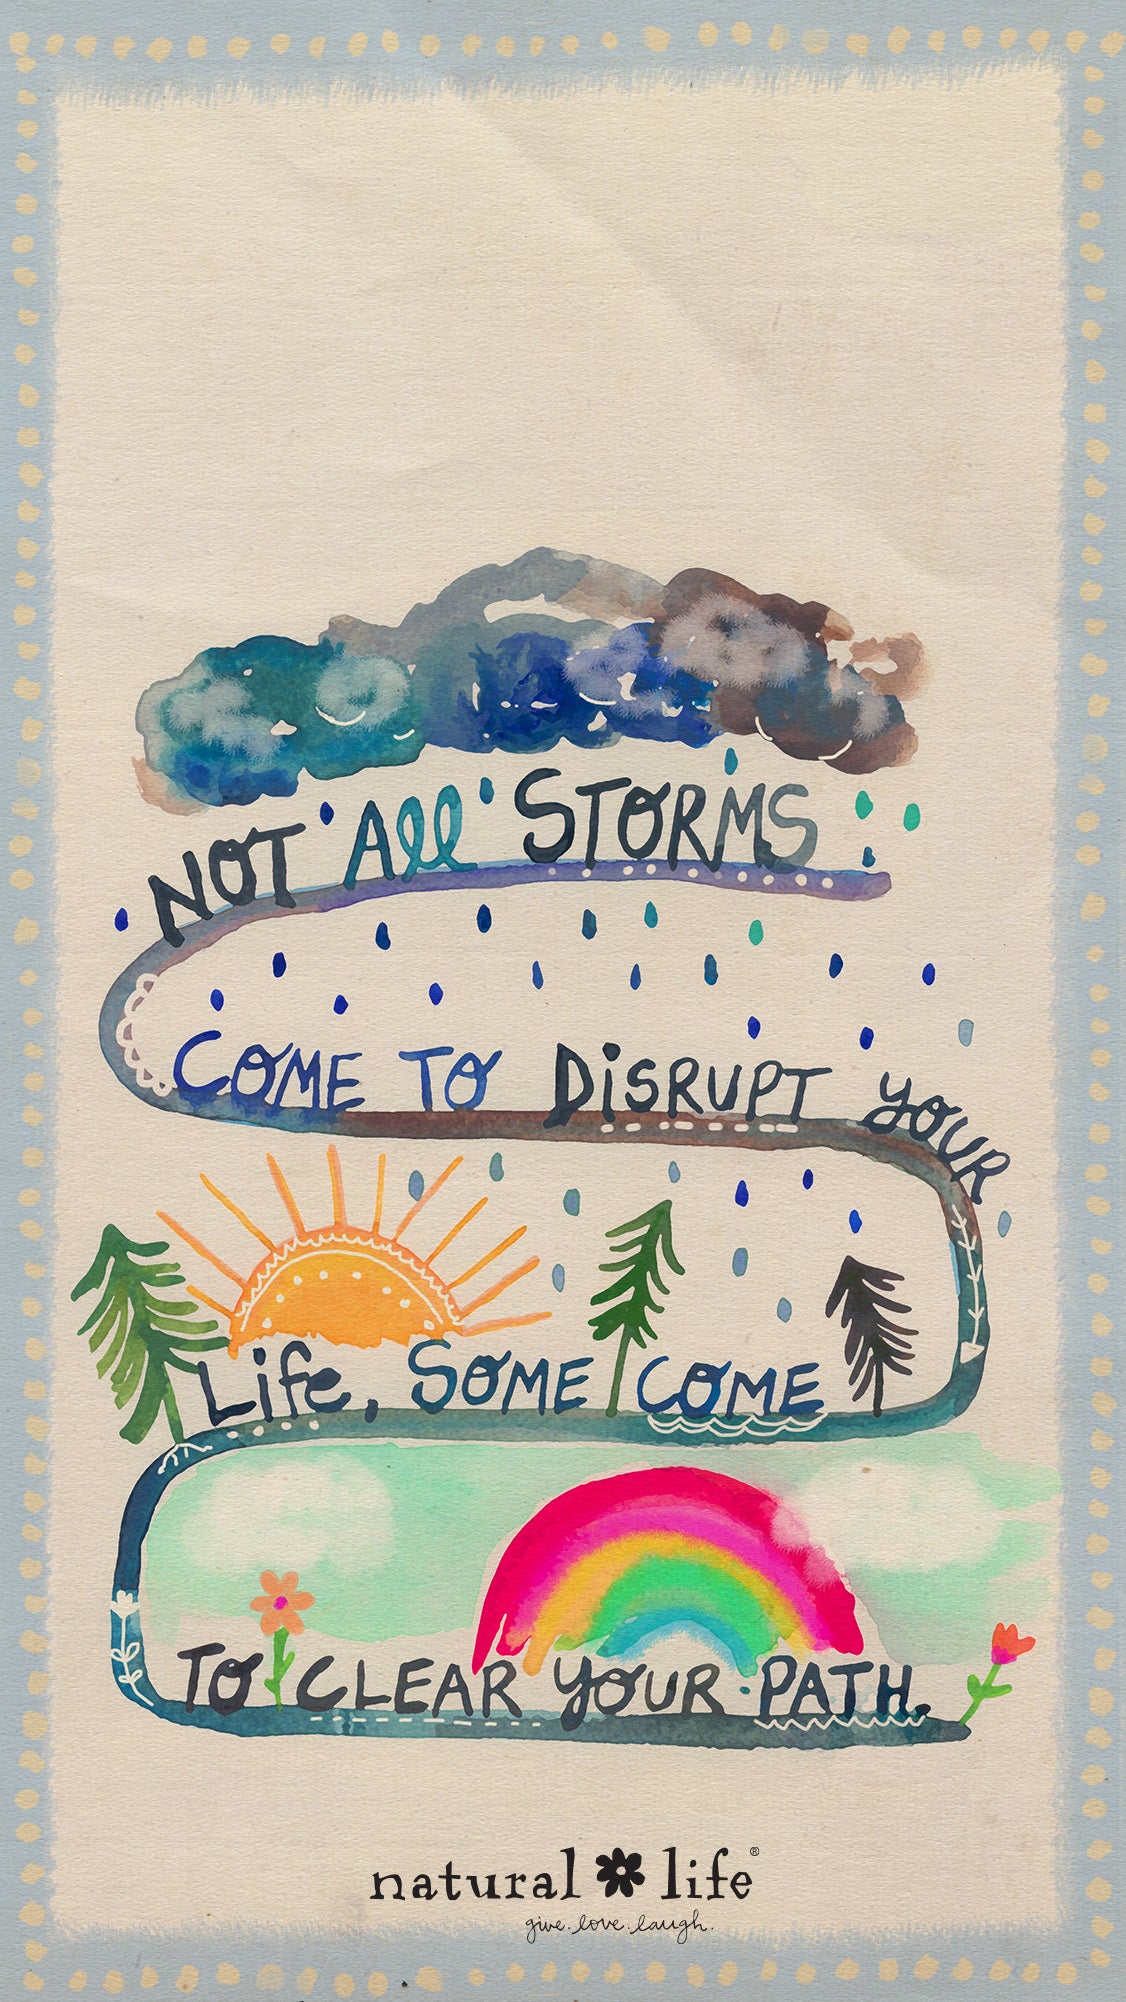 NOT All STORMS
COME TO DiSRUPT YOUR
Life, SOME COME
TO CLEAR YOUR PATH.
natural life®
give.love.laugh.